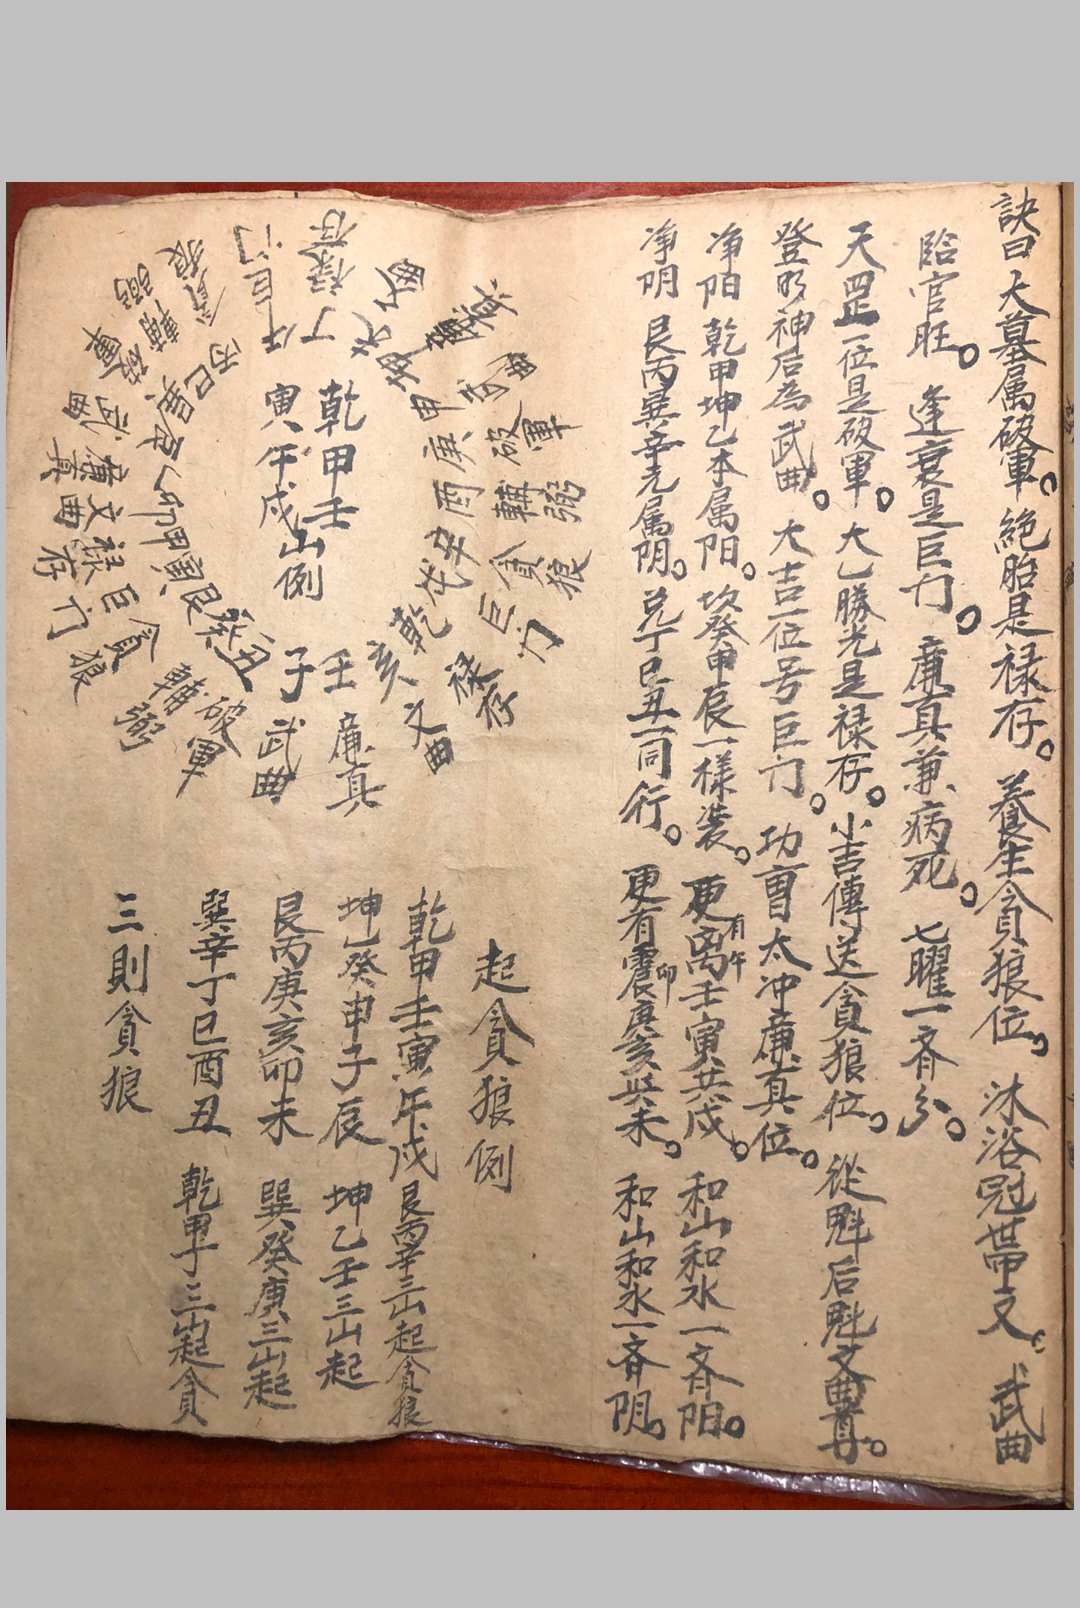 訣曰大墓属破軍。絕胎是禄存。養生貪狼位。沐浴冠带文。武曲
臨官旺。逢衰是巨门。亷真兼病死。七曜一齐分。
天罡一位是破軍。太乙勝光是禄存。小吉傳送貪狼位。從魁后魁文曲尊。
登明神后為武曲。大吉一位号巨门。功曹太冲亷真位。
净阳 乾甲坤乙本属阳。坎癸申辰一樣裝。更离壬寅共戍。和山和水一齐阳。
有午
净阴 艮丙巽辛元属阴。兑丁巳丑一同行。更有震庚亥与未。和山和水一齐阴。
卯
起貪狼例
乾甲壬寅午戍 艮丙辛三山起貪狼
坤乙癸申子辰 坤乙壬三山起
艮丙庚亥卯未 巽癸庚三山起
巽辛丁巳酉丑 乾甲丁三山起貪
三則貪狼
乾甲壬
寅午戍山例
壬 亷真
子 武曲
癸丑 破軍
艮 輔弼
寅 貪狼
甲 巨门
卯 禄存
乙 文曲
辰 亷真
巽 武曲
巳 破軍
丙 輔弼
貪狼
午 巨门
丁 禄存
未 文曲
坤 亷真
申 武曲
庚 破軍
酉 輔弼
辛 貪狼
戍 巨门
乾 禄存
亥 文曲